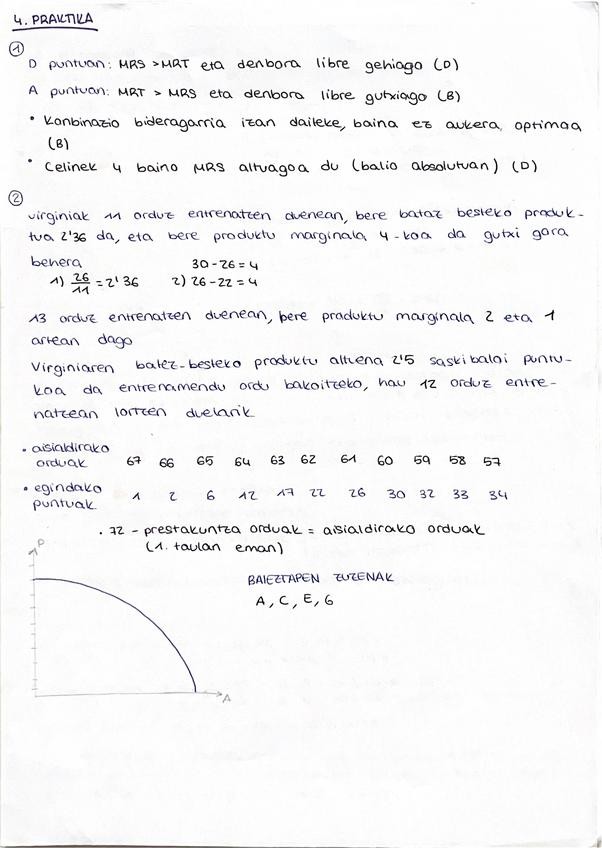 4. PRAKTIKA
1
D puntuan: MRS > MRT eta denbora libre gehiago (D)
A puntuan: MRT > MRS eta denbora libre gutxiago (B)
• Konbinazio bideragarria izan daiteke, baina ez aukera optimoa
(B)
• Celinek 4 baino MRS altuagoa du (balio absolutuan) (D)
2
Virginiak 11 orduz entrenatzen duenean, bere bataz besteko produk-
tua 2'36 da, eta bere produktu marginala 4-koa da gutxi gora
behera
30-26 = 4
1) 26/11 = 2'36 2) 26-22 = 4
13 orduz entrenatzen duenean, bere produktu marginala 2 eta 1
artean dago
Virginiaren batez-besteko produktu altuena 2'5 saskibaloi puntu-
koa da entrenamendu ordu bakoitzeko, hau 12 orduz entre-
natzean lortzen duelarik
• aisialdirako
orduak 67 66 65 64 63 62 61 60 59 58 57
• egindako
puntuak 1 2 6 12 17 22 26 30 32 33 34
. 72 - prestakuntza orduak = aisialdirako orduak
(1. taulan eman)
P
BAIEZTAPEN ZUZENAK
A, C, E, G
A